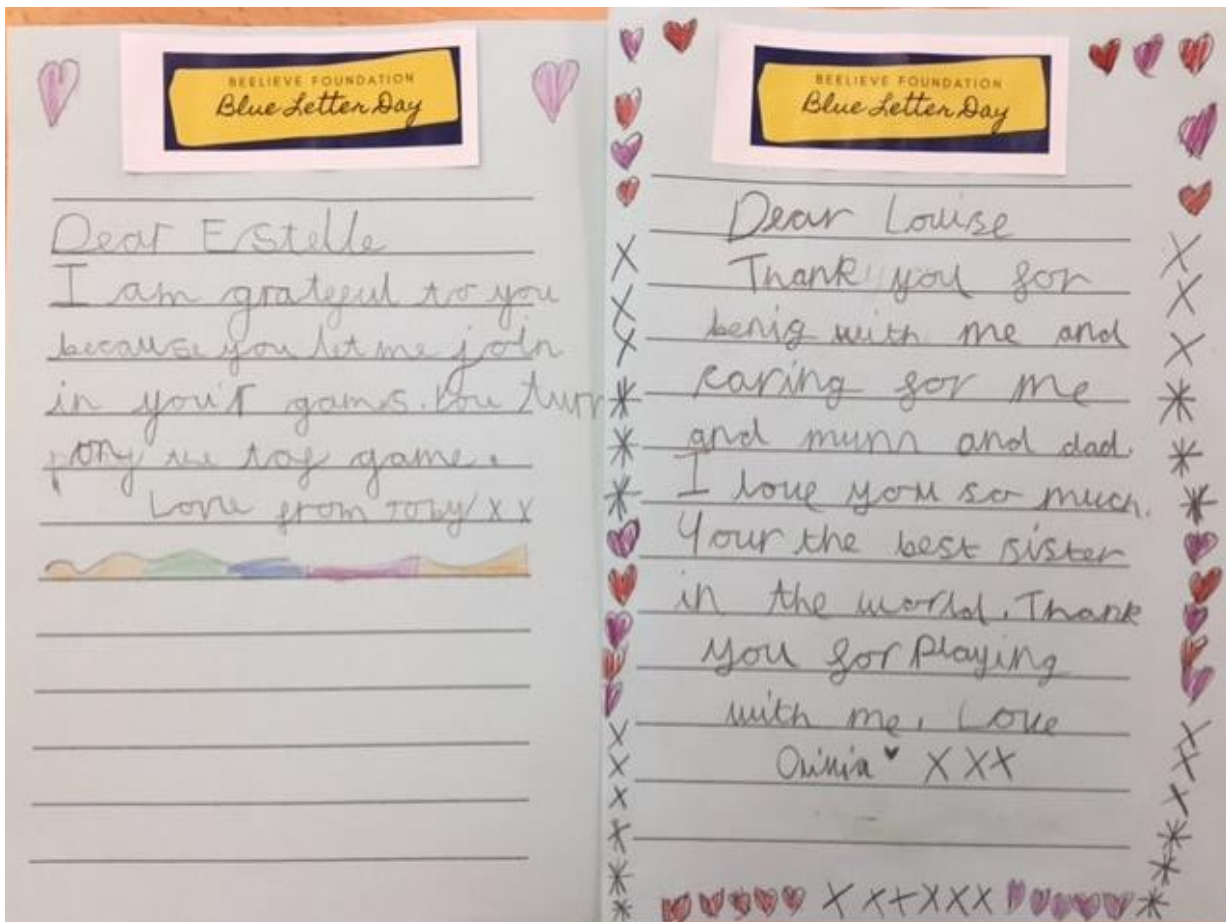 BEELIEVE FOUNDATION
Blue Letter Day
Dear Estelle
I am grateful to you
because you let me join
in you'r gams. You
tag game.
Love from Toby x x
BEELIEVE FOUNDATION
Blue Letter Day
Dear Louise
Thank you for
benig with me and
caring for me
and mum and dad.
I love you so much.
Your the best sister
in the world. Thank
you for Playing
with me. Love
X X X